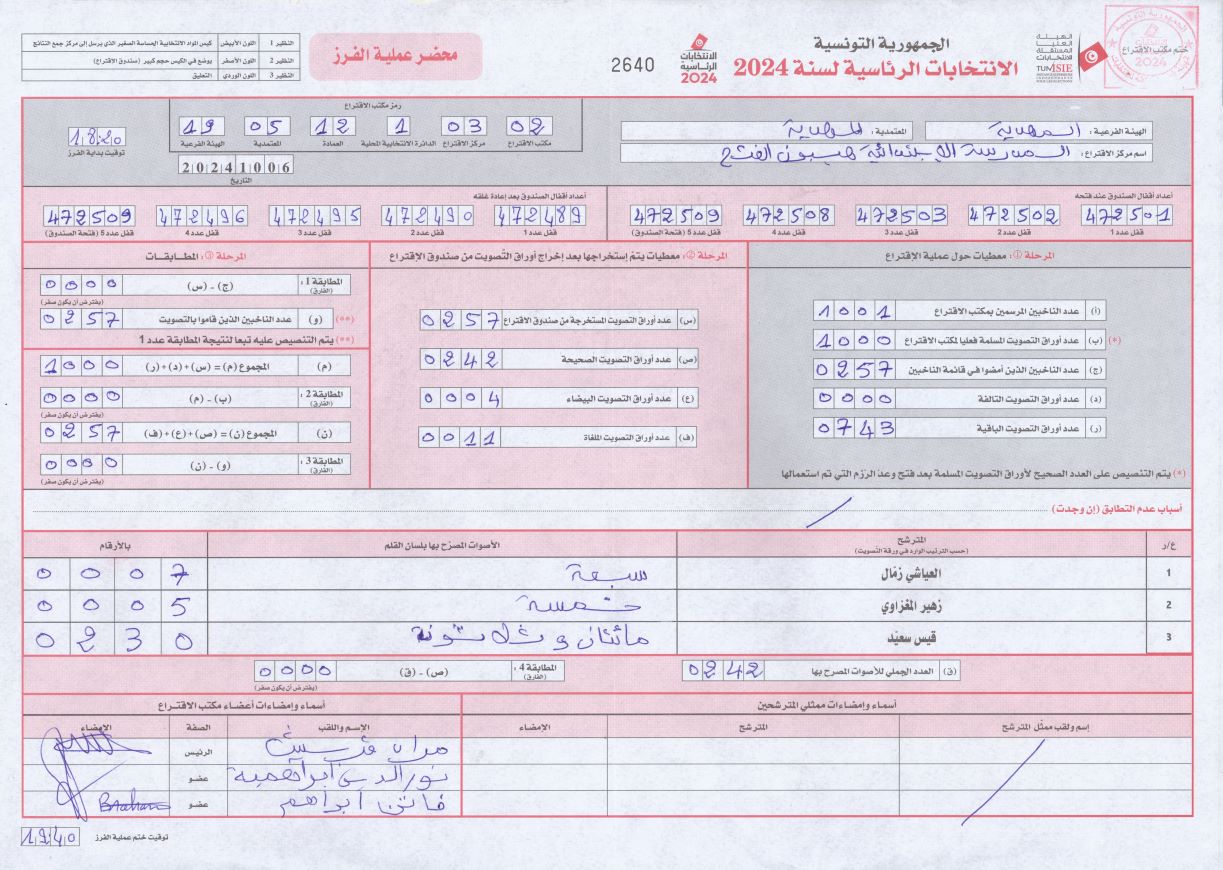 الجمهورية التونسية
الانتخابات الرئاسية لسنة 2024
الهيئة العليا المستقلة للانتخابات
TUNISIE
ختم مكتب الاقتراع
الانتخابات الرئاسية 2024
2640
محضر عملية الفرز
النظير 1 اللون الأبيض كيس المواد الانتخابية الحساسة الصغير الذي يرسل إلى مركز جمع النتائج
النظير 2 اللون الأصفر يوضع في الكيس حجم كبير (صندوق الاقتراع)
النظير 3 اللون الوردي التعليق
الهيئة الفرعية: المهدية المعتمدية: المهدية
اسم مركز الاقتراع: المدرسة الإبتدائية هيبون الفتح
رمز مكتب الاقتراع
02 03 1 12 05 19
مكتب الاقتراع مركز الاقتراع الدائرة الانتخابية المحلية العمادة المعتمدية الهيئة الفرعية
20241006
التاريخ
18:20
توقيت بداية الفرز
أعداد أقفال الصندوق عند فتحه
472501 472502 472503 472508 472509
قفل عدد 1 قفل عدد 2 قفل عدد 3 قفل عدد 4 قفل عدد 5 (فتحة الصندوق)
أعداد أقفال الصندوق بعد إعادة غلقه
472489 472490 472495 472496 472509
قفل عدد 1 قفل عدد 2 قفل عدد 3 قفل عدد 4 قفل عدد 5 (فتحة الصندوق)
المرحلة ①: معطيات حول عملية الاقتراع
(أ) عدد الناخبين المرسمين بمكتب الاقتراع 1001
(*) (ب) عدد أوراق التصويت المسلمة فعليا لمكتب الاقتراع 1000
(ج) عدد الناخبين الذين أمضوا في قائمة الناخبين 0257
(د) عدد أوراق التصويت التالفة 0000
(ر) عدد أوراق التصويت الباقية 0743
(*) يتم التنصيص على العدد الصحيح لأوراق التصويت المسلمة بعد فتح وعد الرزم التي تم استعمالها
المرحلة ②: معطيات يتم إستخراجها بعد إخراج أوراق التصويت من صندوق الإقتراع
(س) عدد أوراق التصويت المستخرجة من صندوق الاقتراع 0257
(ص) عدد أوراق التصويت الصحيحة 0242
(ع) عدد أوراق التصويت البيضاء 0004
(ف) عدد أوراق التصويت الملغاة 0011
المرحلة ③: المطابقات
المطابقة 1: (الفارق) (ج) - (س) 0000
(يفترض أن يكون صفر)
(**) (و) عدد الناخبين الذين قاموا بالتصويت 0257
(**) يتم التنصيص عليه تبعا لنتيجة المطابقة عدد 1
(م) المجموع (م) = (س)+(د)+(ر) 1000
المطابقة 2: (الفارق) (ب) - (م) 0000
(يفترض أن يكون صفر)
(ن) المجموع (ن) = (ص)+(ع)+(ف) 0257
المطابقة 3: (الفارق) (و) - (ن) 0000
(يفترض أن يكون صفر)
أسباب عدم التطابق (إن وجدت)
ع/د المترشح الأصوات المصرّح بها بلسان القلم بالأرقام
(حسب الترتيب الوارد في ورقة التصويت)
1 العياشي زمّال سبعة 0007
2 زهير المغزاوي خمسة 0005
3 قيس سعيّد مائتان وثلاثونة 0230
(ق) العدد الجملي للأصوات المصرح بها 0242
المطابقة 4: (الفارق) (ص) - (ق) 0000
(يفترض أن يكون صفر)
أسماء وإمضاءات ممثلي المترشحين
إسم ولقب ممثّل المترشح المترشح الامضاء
أسماء وإمضاءات أعضاء مكتب الاقتراع
الإسم واللقب الصفة الإمضاء
الرئيس
نور الدين ابراهمية عضو
فاتن ابراهم عضو
توقيت ختم عملية الفرز 19:40